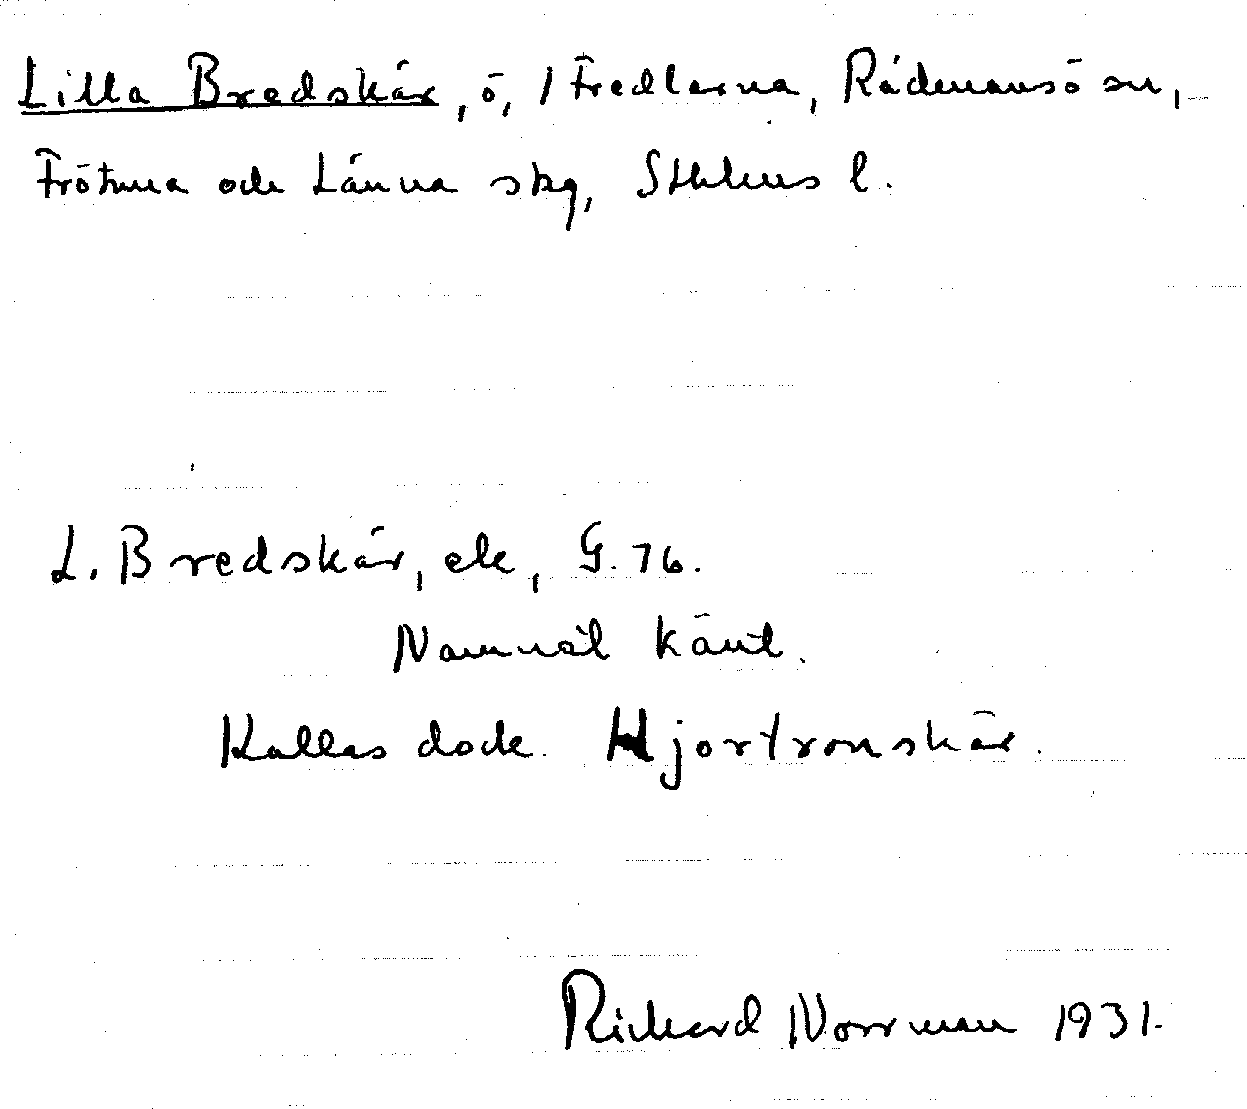 Lilla Bredskär, ö, / Fredlarna, Rådmansö sn,
Frötuna och Länna skg, Sthlms l.
L. Bredskär, ek, G. 76.
Namnet känt.
Kallas dock Hjortronskär.
Rickard Norrman 1931.